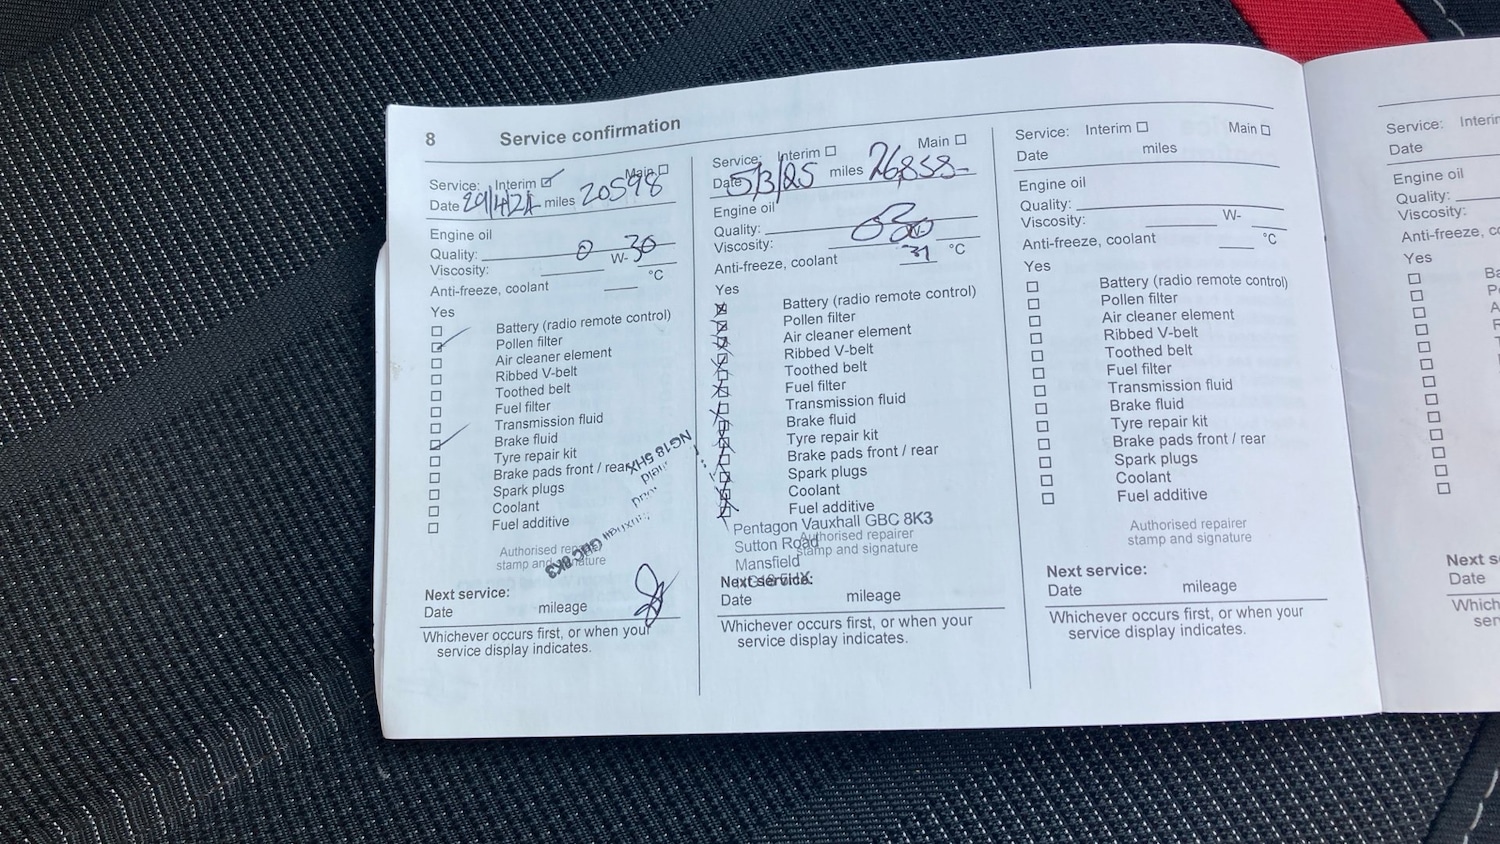 8 Service confirmation
Service: Interim ☑ Main ☐
Date 29/4/24 miles 20598
Engine oil
Quality:
Viscosity: 0 W- 30
Anti-freeze, coolant °C
Yes
Battery (radio remote control)
Pollen filter
Air cleaner element
Ribbed V-belt
Toothed belt
Fuel filter
Transmission fluid
Brake fluid
Tyre repair kit
Brake pads front / rear
Spark plugs
Coolant
Fuel additive
NG18 5HX
GBC 8K3
Authorised repairer
stamp and signature
Next service:
Date mileage
Whichever occurs first, or when your
service display indicates.
Service: Interim ☐ Main ☐
Date 5/3/25 miles 26,858
Engine oil
Quality:
Viscosity: W-
Anti-freeze, coolant °C
Yes
Battery (radio remote control)
Pollen filter
Air cleaner element
Ribbed V-belt
Toothed belt
Fuel filter
Transmission fluid
Brake fluid
Tyre repair kit
Brake pads front / rear
Spark plugs
Coolant
Fuel additive
Pentagon Vauxhall GBC 8K3
Sutton Road
Mansfield
Authorised repairer
stamp and signature
Next service:
Date mileage
Whichever occurs first, or when your
service display indicates.
Service: Interim ☐ Main ☐
Date miles
Engine oil
Quality:
Viscosity: W-
Anti-freeze, coolant °C
Yes
Battery (radio remote control)
Pollen filter
Air cleaner element
Ribbed V-belt
Toothed belt
Fuel filter
Transmission fluid
Brake fluid
Tyre repair kit
Brake pads front / rear
Spark plugs
Coolant
Fuel additive
Authorised repairer
stamp and signature
Next service:
Date mileage
Whichever occurs first, or when your
service display indicates.
Service:
Date
Engine oil
Quality:
Viscosity:
Anti-freeze,
Yes
Date